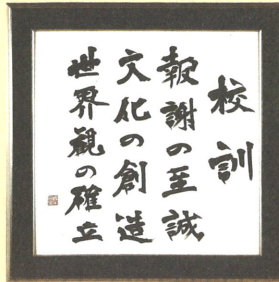 校訓
報謝の至誠
文化の創造
世界観の確立